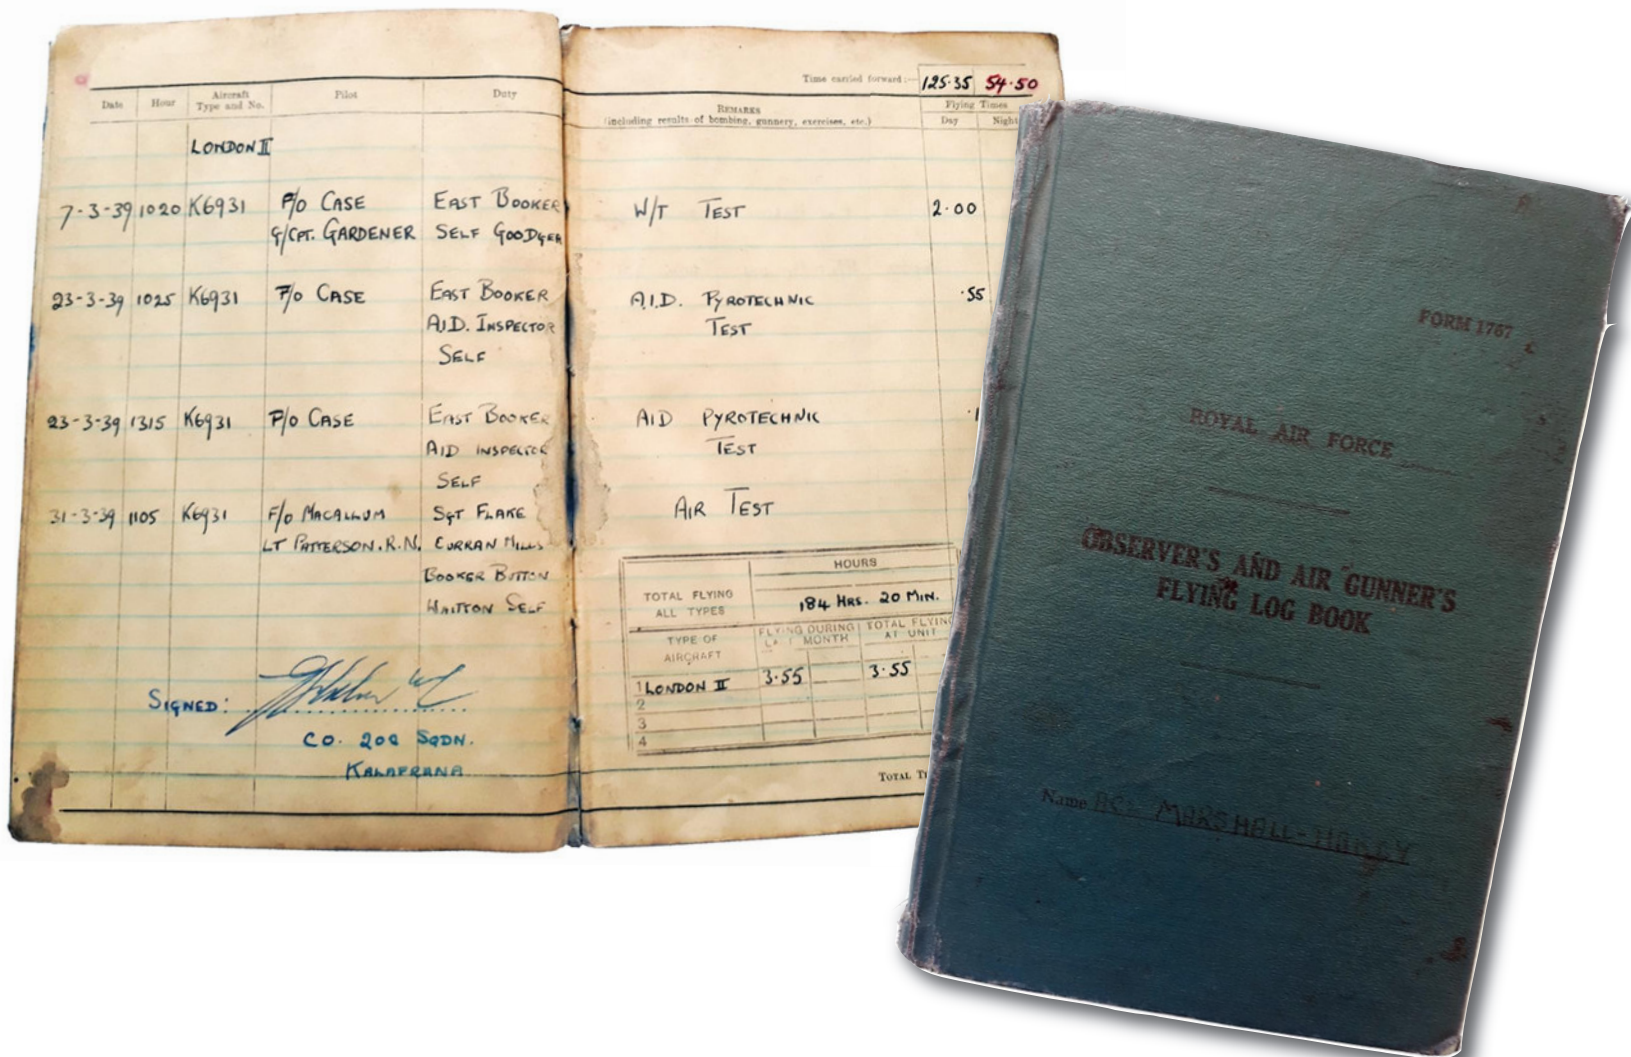 Time carried forward:— 125.35 54.50
Date Hour Aircraft Type and No. Pilot Duty
REMARKS
(including results of bombing, gunnery, exercises, etc.)
Flying Times
Day Night
LONDON II
7-3-39 1020 K6931 F/O CASE EAST BOOKER W/T TEST 2.00
G/CPT. GARDENER SELF GOODYER
23-3-39 1025 K6931 F/O CASE EAST BOOKER A.I.D. PYROTECHNIC .55
A.I.D. INSPECTOR TEST
SELF
23-3-39 1315 K6931 F/O CASE EAST BOOKER AID PYROTECHNIC
AID INSPECTOR TEST
SELF
31-3-39 1105 K6931 F/O MACALLUM SGT FLAKE AIR TEST
LT PATTERSON. R.N. CURRAN MILLS
BOOKER BUTTON
WAITTON SELF
HOURS
TOTAL FLYING
ALL TYPES
184 HRS. 20 MIN.
TYPE OF
AIRCRAFT
FLYING DURING
LAST MONTH
TOTAL FLYING
AT UNIT
1 LONDON II 3.55 3.55
2
3
4
SIGNED:
CO. 202 SQDN.
KALAFRANA
TOTAL
FORM 1767
ROYAL AIR FORCE
OBSERVER'S AND AIR GUNNER'S
FLYING LOG BOOK
Name AC1 MARSHALL-HARDY